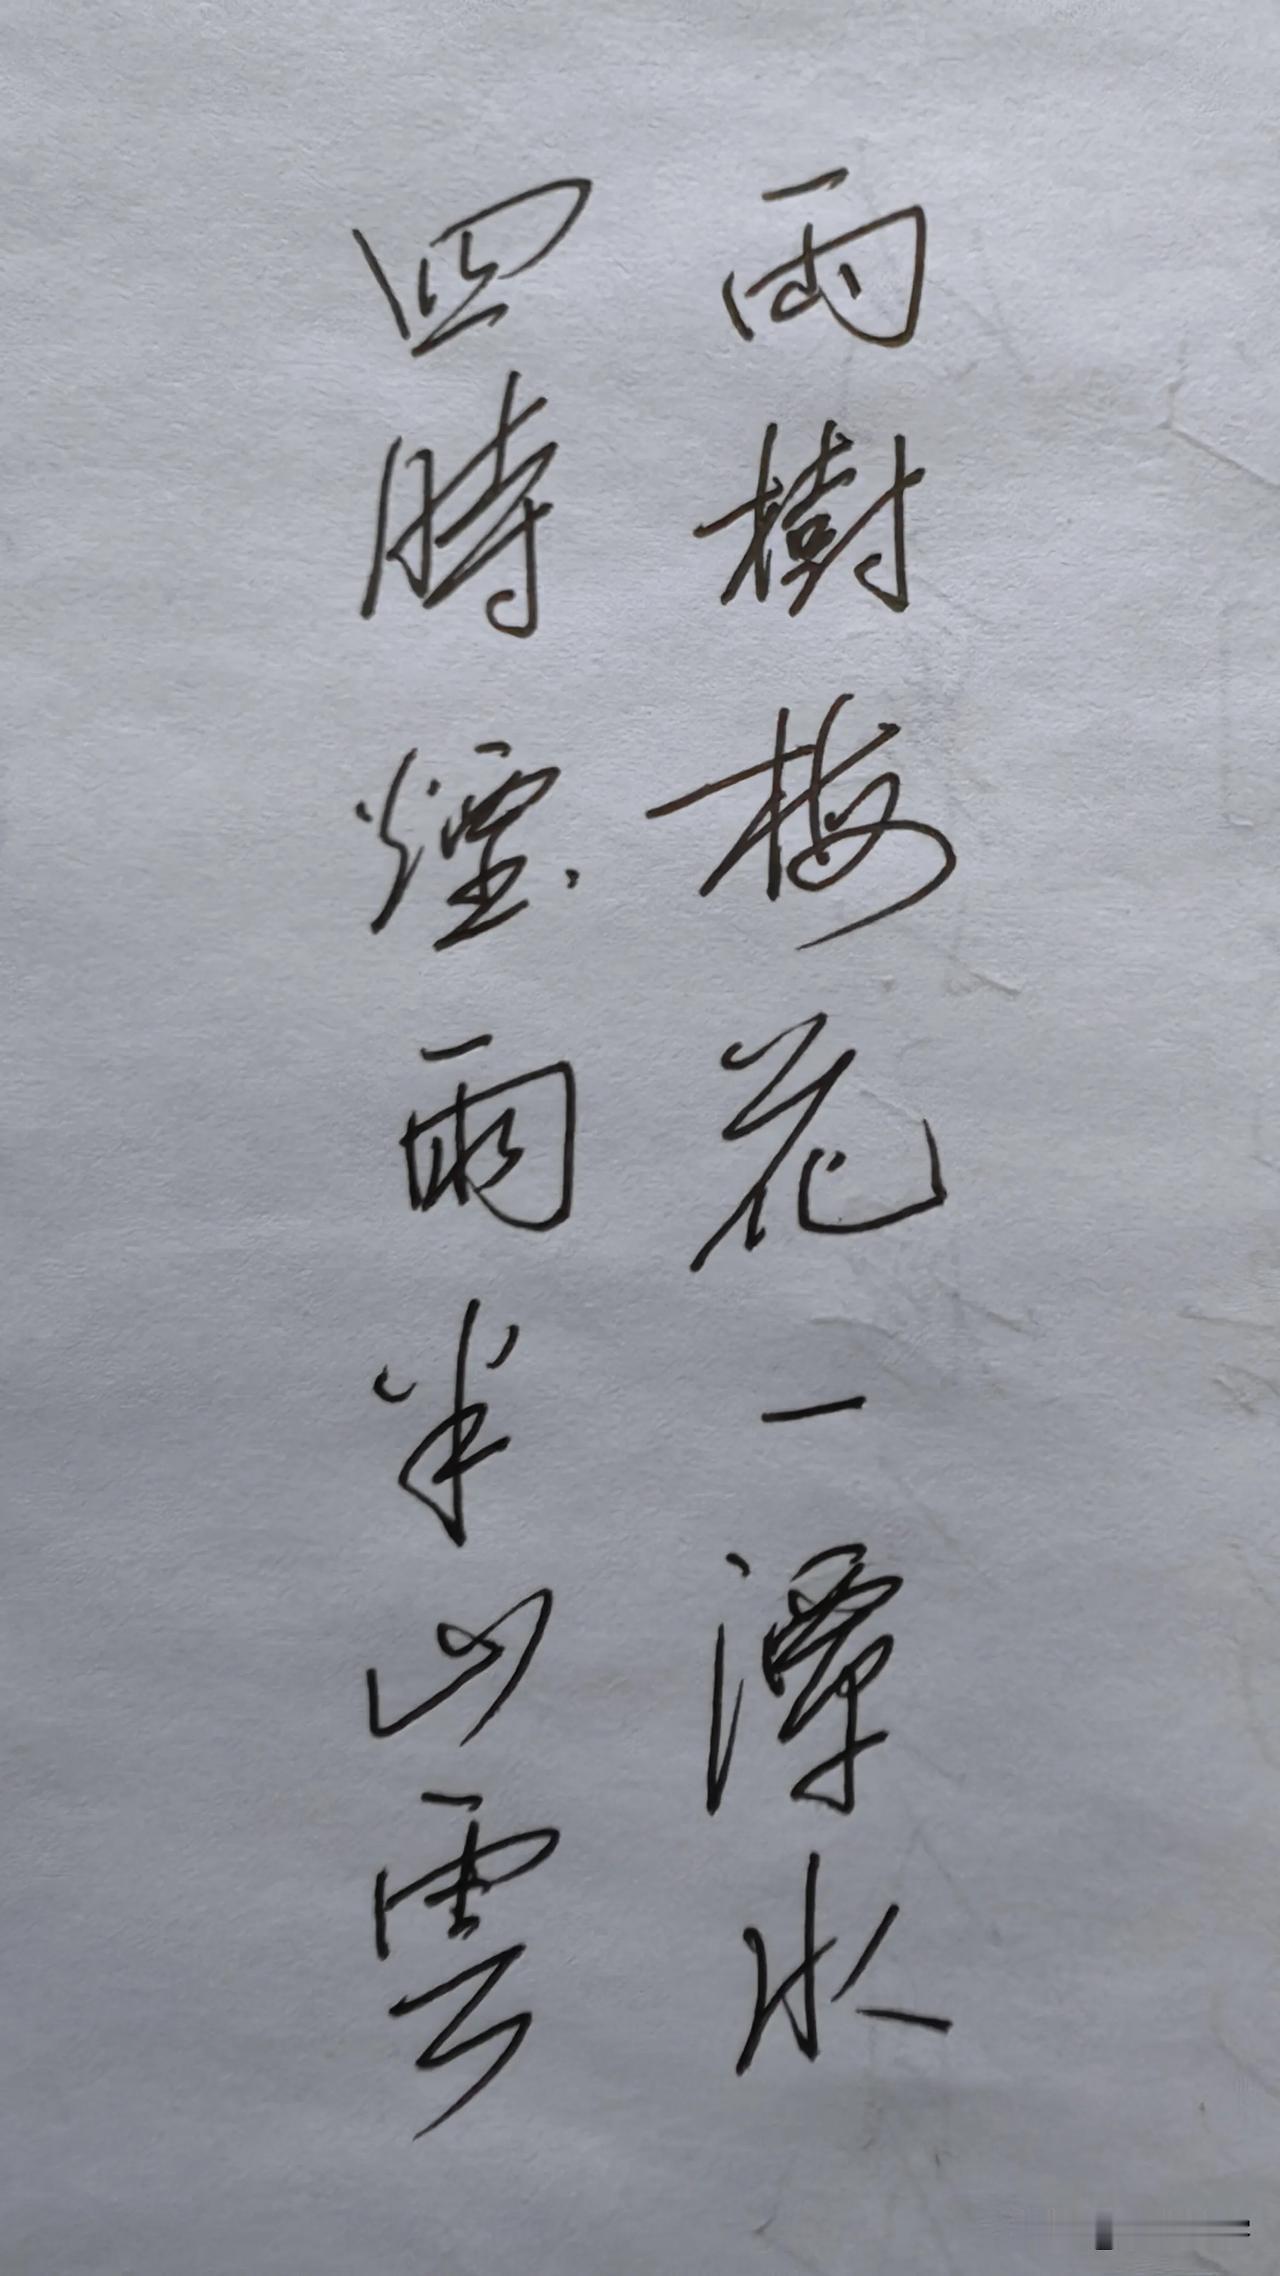 兩樹梅花一潭水
四時煙雨半山雲